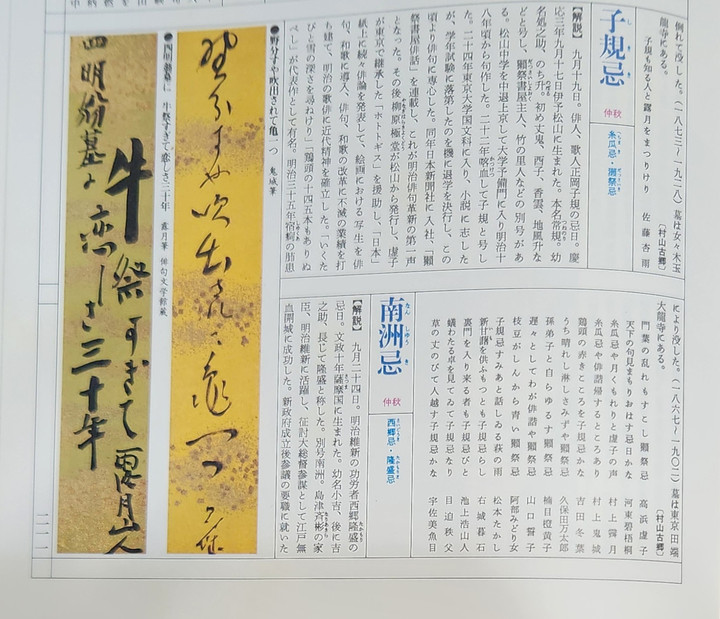 倒れて没した。(一八七三〜一九二八)墓は女々木玉
龍寺にある。 〔村山古郷〕
子規も知る人と露月をまつりけり 佐藤杏雨
子規忌 しきき 仲秋
糸瓜忌・獺祭忌
【解説】 九月十九日。俳人、歌人正岡子規の忌日。慶
応三年九月十七日伊予松山に生まれた。本名常規。幼
名処之助、のち升。初め丈鬼、西子、香雲、地風升な
どと号し、獺祭書屋主人、竹の里人などの別号があ
る。松山中学を中退上京して大学予備門に入り明治十
八年頃から句作した。二十二年喀血して子規と号し
た。二十四年東京大学国文科に入り、小説に志した
が、学年試験に落第したのを機に退学を決行し、この
頃より俳句に専心した。同年日本新聞社に入社、「獺
祭書屋俳話」を連載し、これが明治俳句革新の第一声
となった。その後柳原極堂が松山から発行し、虚子
が東京で継承した「ホトトギス」を援助し、「日本」
紙上に続々俳論を発表して、絵画における写生を俳
句、和歌に導入、俳句、和歌の改革に不滅の業績を打
ち建て、明治の歌俳に近代精神を確立した。「いくた
びも雪の深さを尋ねけり」「鶏頭の十四五本もありぬ
べし」が代表作として有名。明治三十五年宿痾の肺患
により没した。(一八六七〜一九〇二)墓は東京田端
大龍寺にある。 〔村山古郷〕
門葉の乱れもすこし獺祭忌 高浜虚子
天下の句見まもりおはす忌日かな 河東碧梧桐
糸瓜忌や月くもれりと虚子の声 村上霽月
糸瓜忌や俳諧帰するところあり 村上鬼城
鶏頭の赤きこころを子規忌かな 吉田冬葉
うち晴れし淋しさみずや獺祭忌 久保田万太郎
孫弟子と自らゆるす獺祭忌 楠目橙黄子
遅々としてわが俳諧や獺祭忌 山口誓子
枝豆がしんから青い獺祭忌 阿部みどり女
子規忌すみあと話しゐる萩の雨 松本たかし
新甘藷を供ふもつとも子規忌らし 右城暮石
裏門を入り来る者も子規忌びと 池上浩山人
蟻わたる卓を見てゐて子規忌なり 目迫秩父
草の丈のびて人越す子規忌かな 宇佐美魚目
南洲忌 なんしゅうき 仲秋
西郷忌・隆盛忌
【解説】 九月二十四日。明治維新の功労者西郷隆盛の
忌日。文政十年薩摩国に生まれた。幼名小吉、後に吉
之助、長じて隆盛と称した。別号南洲。島津斉彬の家
臣、明治維新に活躍し、征討大総督参謀として江戸無
血開城に成功した。新政府成立後参議の要職に就いた
●野分すや吹出されて亀一つ 鬼城筆
野分すや吹出されて亀一つ 鬼城
●四明翁墓に 牛祭すぎて恋しさ三十年 露月筆 俳句文学館蔵
四明翁墓に
牛祭すぎて
恋しさ三十年
露月山人
二一一